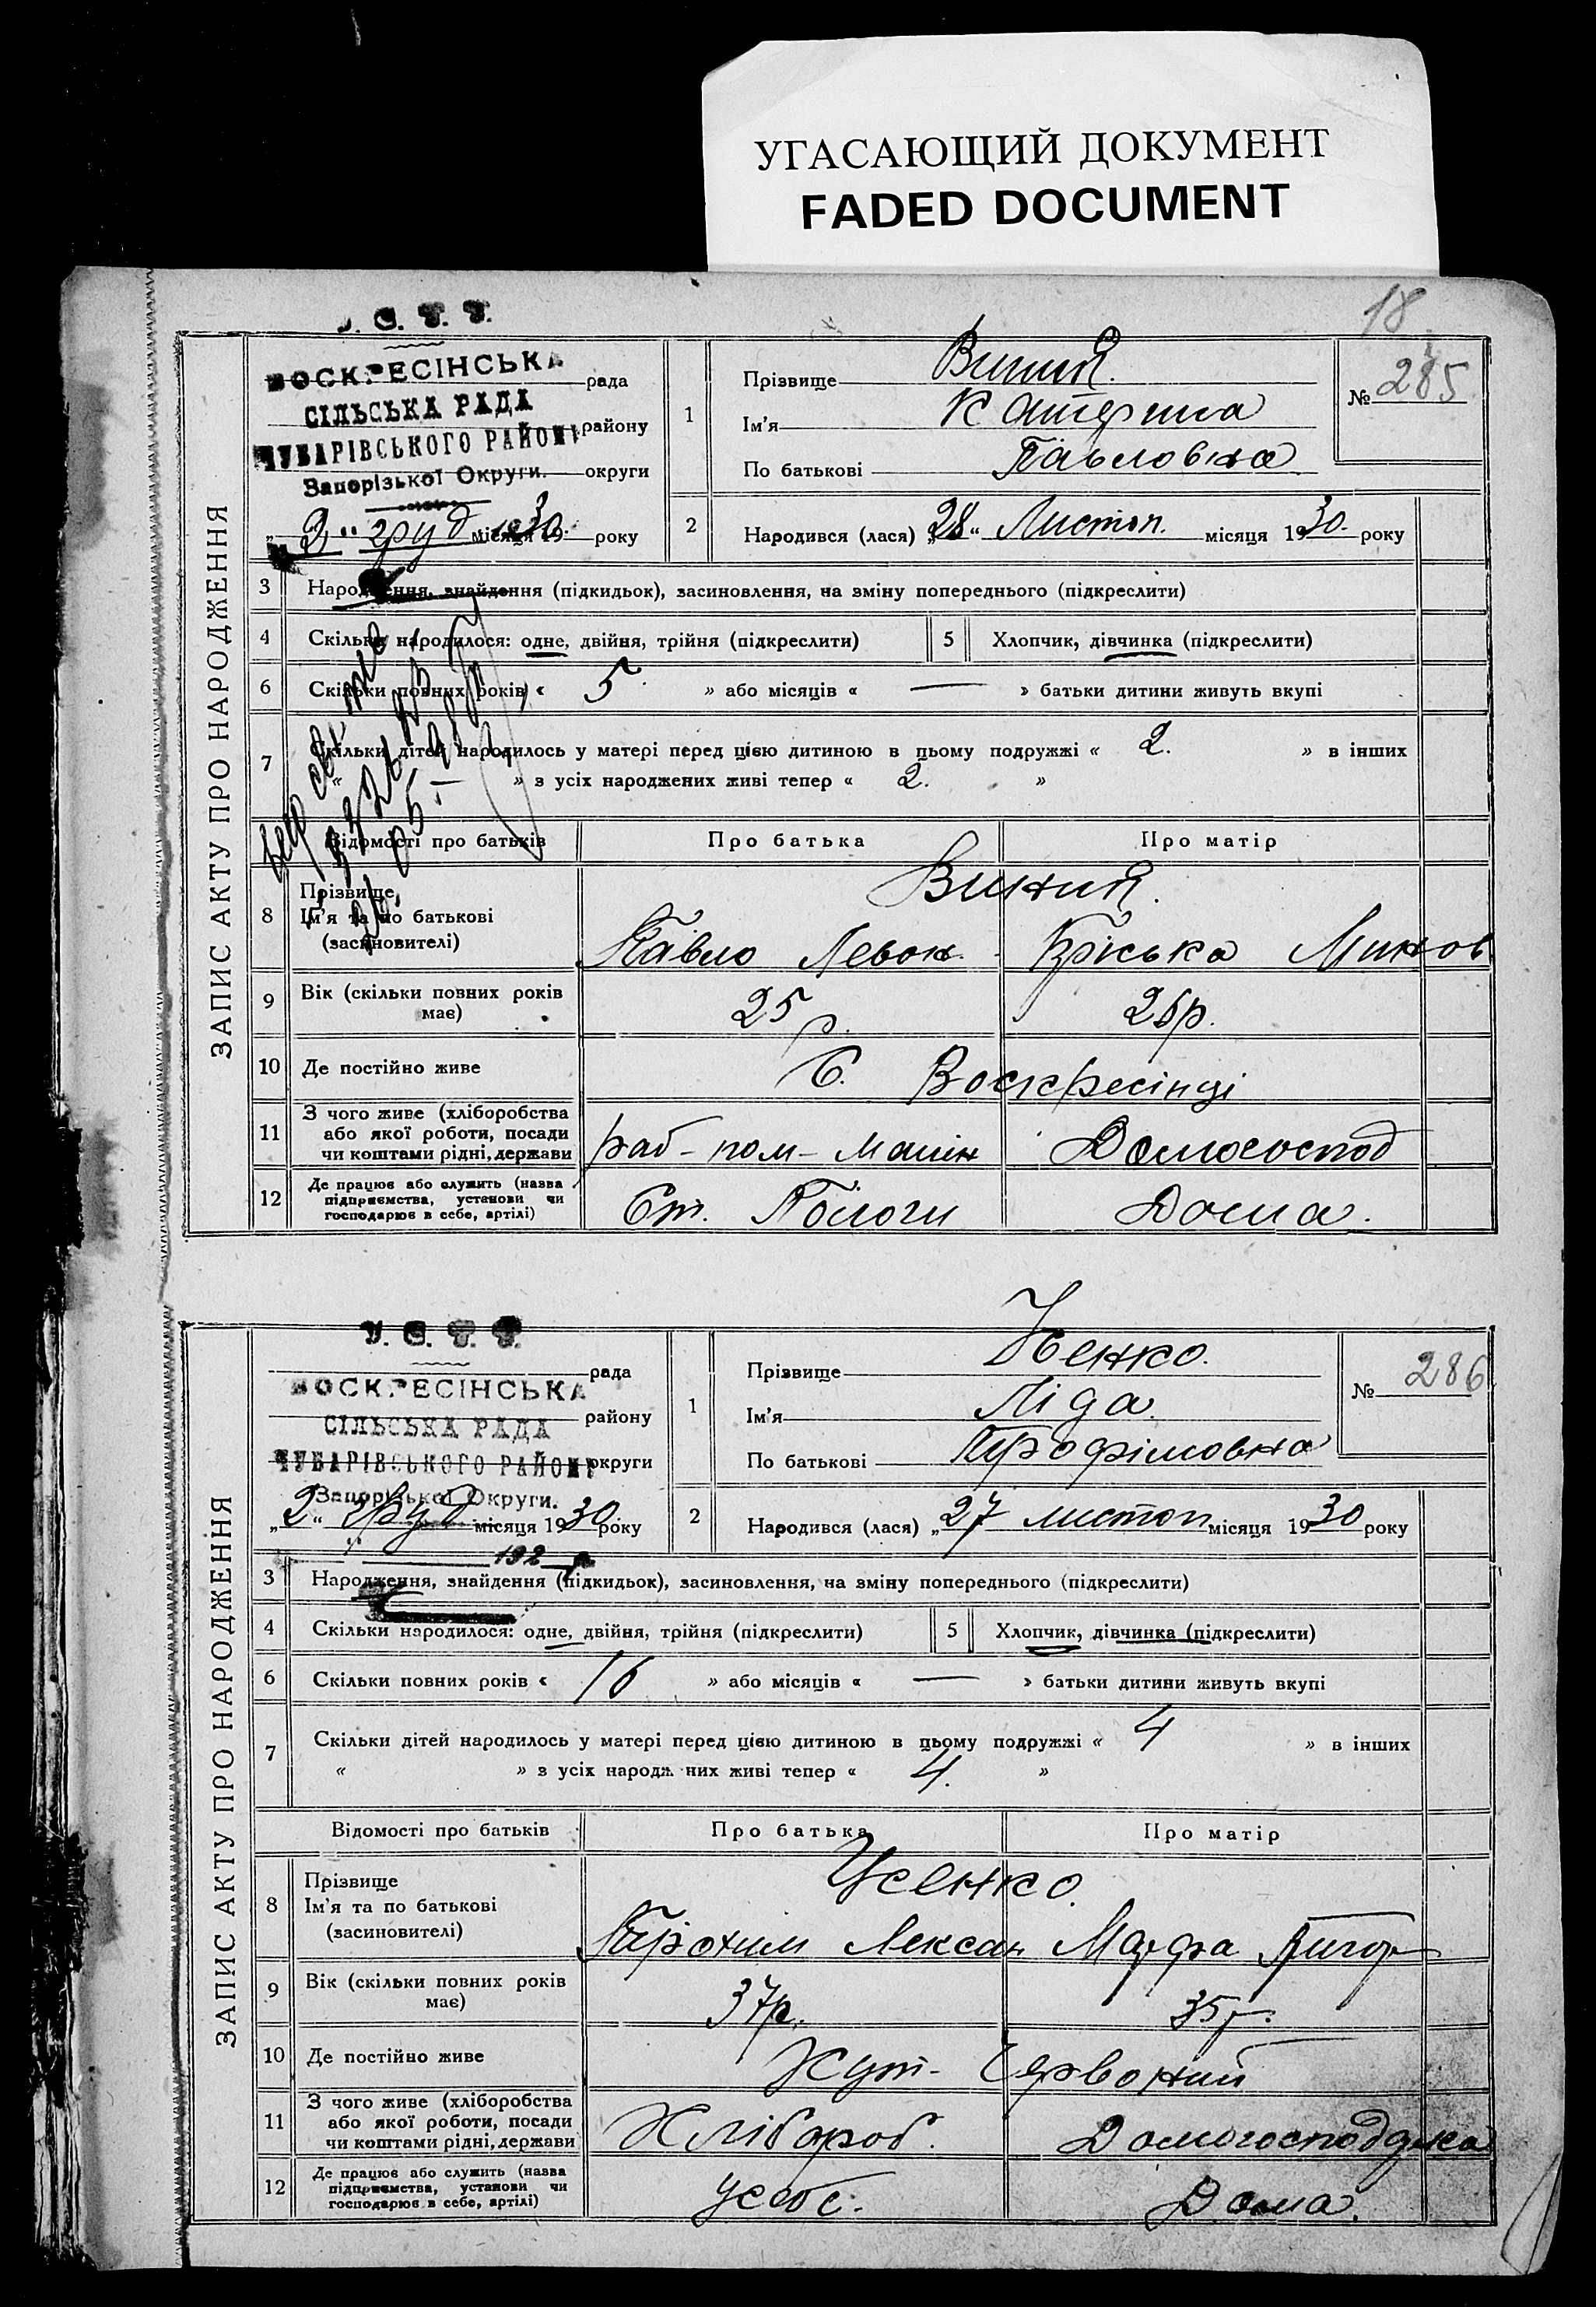 УГАСАЮЩИЙ ДОКУМЕНТ
FADED DOCUMENT
18
ЗАПИС АКТУ ПРО НАРОДЖЕННЯ
У. С. Р. Р.
ВОСКРЕСІНСЬКА рада
СІЛЬСЬКА РАДА району
ЧУБАРІВСЬКОГО РАЙОНУ
Запорізької Округи. округи
„2" груд місяця 1930 року
1 Прізвище Виний
Ім'я Катерина
По батькові Павловна
№ 285
2 Народився (лася) „28" Листоп. місяця 1930. року
3 Народження, знайдення (підкидьок), засиновлення, на зміну попереднього (підкреслити)
4 Скільки народилося: одне, двійня, трійня (підкреслити) 5 Хлопчик, дівчинка (підкреслити)
6 Скільки повних років « 5 » або місяців « — » батьки дитини живуть вкупі
7 Скільки дітей народилось у матері перед цією дитиною в цьому подружжі « 2. » в інших
« » з усіх народжених живі тепер « 2. »
Відомості про батьків Про батька Про матір
8 Прізвище, Ім'я та по батькові (засиновителі)
Виний.
Павло Левон. Минов
9 Вік (скільки повних років має) 25 р. 25р.
10 Де постійно живе С. Воскресінці
11 З чого живе (хліборобства або якої роботи, посади чи коштами рідні, держави раб - пом - Машин Домогоспод
12 Де працює або служить (назва підприємства, установи чи господарює в себе, артілі) Ст. Пологи Дома.
ЗАПИС АКТУ ПРО НАРОДЖЕННЯ
У. С. Р. Р.
рада
ВОСКРЕСІНСЬКА
СІЛЬСЬКА РАДА району
ЧУБАРІВСЬКОГО РАЙОНУ округи
Запорізької Округи.
„2" груд місяця 1930 року
192 р
1 Прізвище Усенко.
Ім'я Ліда.
По батькові Трофімовна
№ 286
2 Народився (лася) „27 листоп місяця 1930 року
3 Народження, знайдення (підкидьок), засиновлення, на зміну попереднього (підкреслити)
4 Скільки народилося: одне, двійня, трійня (підкреслити) 5 Хлопчик, дівчинка (підкреслити)
6 Скільки повних років « 16 » або місяців « — » батьки дитини живуть вкупі
7 Скільки дітей народилось у матері перед цією дитиною в цьому подружжі « 4 » в інших
« » з усіх народжених живі тепер « 4. »
Відомості про батьків Про батька Про матір
8 Прізвище Ім'я та по батькові (засиновителі)
Усенко.
Трохим Лексан Марфа Григор
9 Вік (скільки повних років має) 37р. 35р.
10 Де постійно живе Хут- Червоний
11 З чого живе (хліборобства або якої роботи, посади чи коштами рідні, держави Хлібороб. Домогосподарка
12 Де працює або служить (назва підприємства, установи чи господарює в себе, артілі) усебе. Дома.